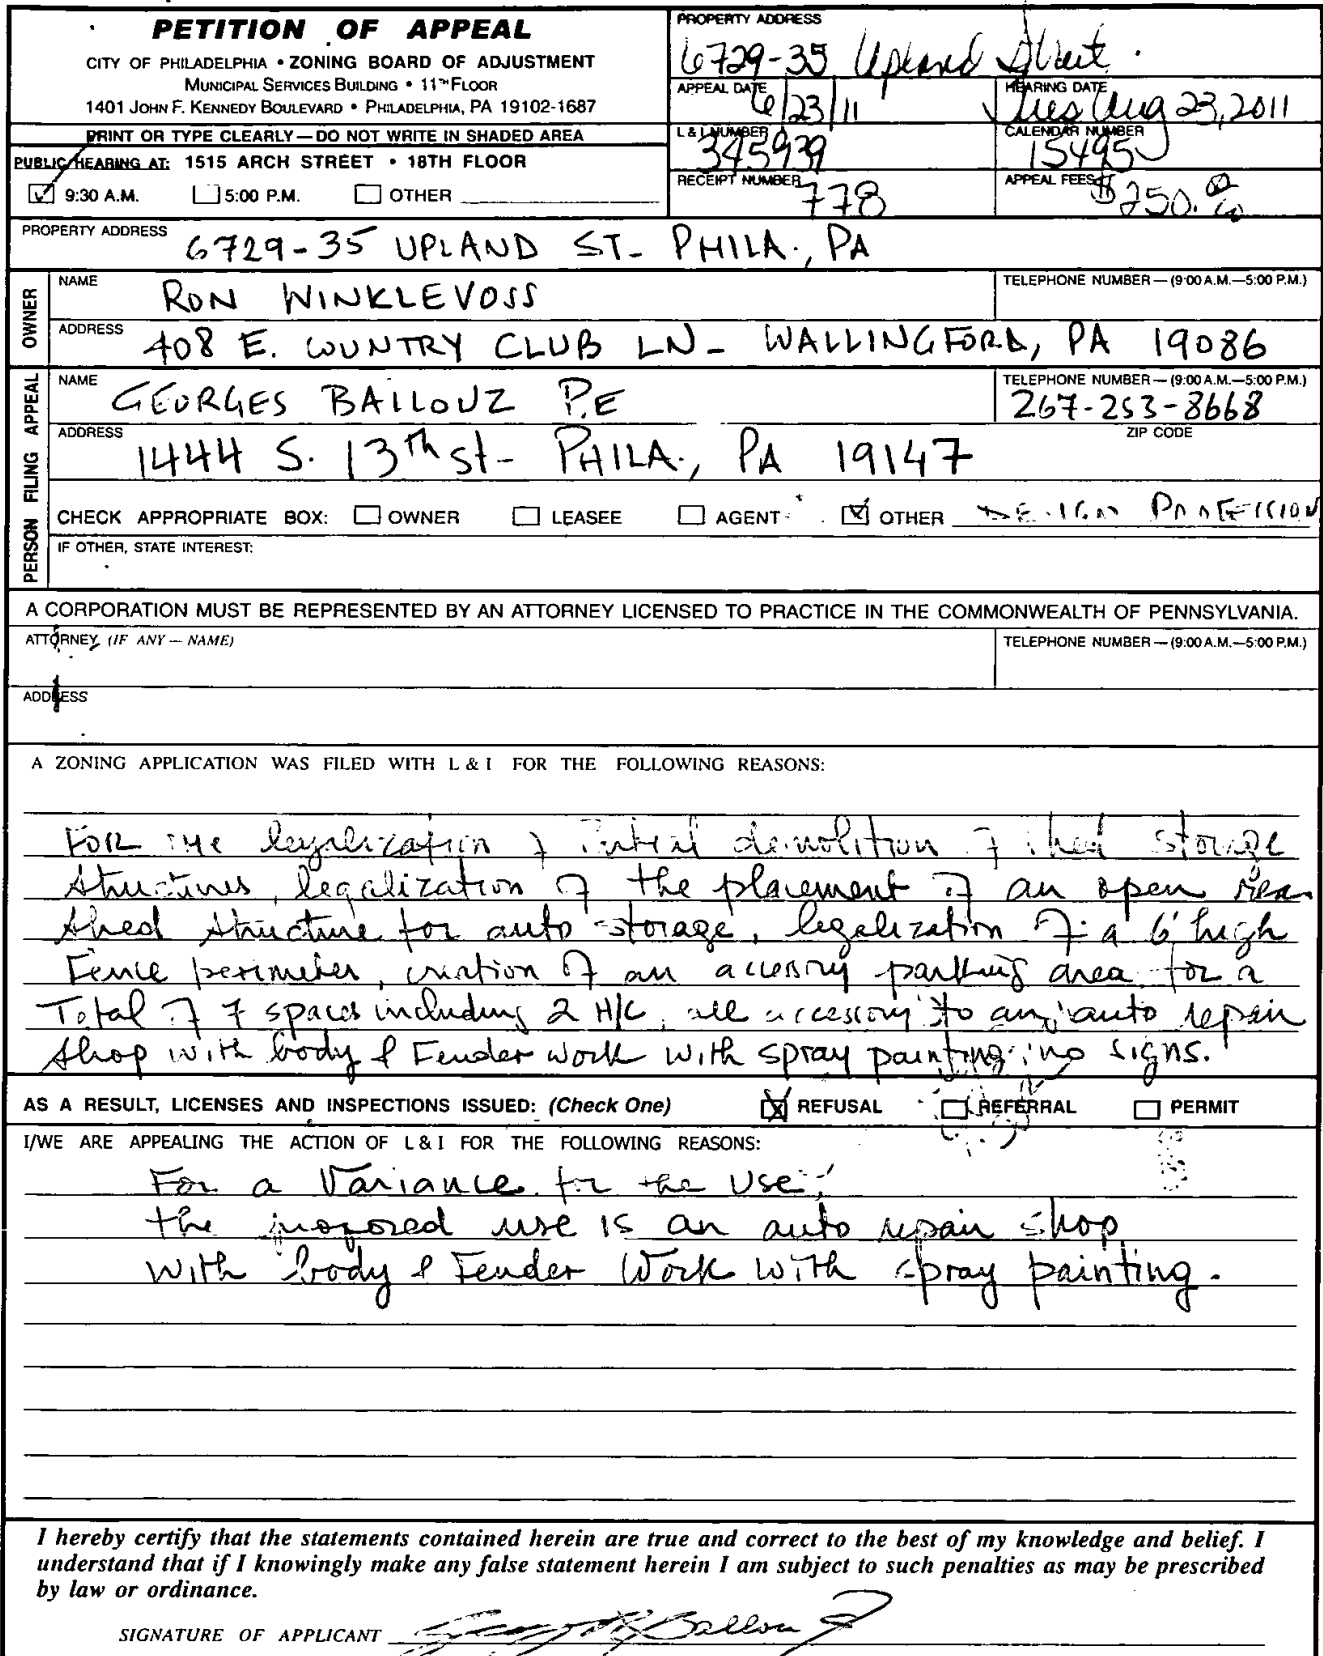 PETITION OF APPEAL
CITY OF PHILADELPHIA • ZONING BOARD OF ADJUSTMENT
MUNICIPAL SERVICES BUILDING • 11TH FLOOR
1401 JOHN F. KENNEDY BOULEVARD • PHILADELPHIA, PA 19102-1687
PRINT OR TYPE CLEARLY — DO NOT WRITE IN SHADED AREA
PUBLIC HEARING AT: 1515 ARCH STREET • 18TH FLOOR
9:30 A.M. 5:00 P.M. OTHER
PROPERTY ADDRESS
6729-35 Upland Street
APPEAL DATE 6/23/11
HEARING DATE Tues Aug 23, 2011
L & I NUMBER 345939
CALENDAR NUMBER 15495
RECEIPT NUMBER 778
APPEAL FEES $250.00
PROPERTY ADDRESS 6729-35 UPLAND ST- PHILA., PA
OWNER
NAME RON WINKLEVOSS
TELEPHONE NUMBER — (9:00 A.M.—5:00 P.M.)
ADDRESS 408 E. COUNTRY CLUB LN- WALLINGFORD, PA 19086
PERSON FILING APPEAL
NAME GEORGES BALLOUZ P.E
TELEPHONE NUMBER — (9:00 A.M.—5:00 P.M.)
267-253-8668
ADDRESS 1444 S. 13th St- PHILA., PA 19147
ZIP CODE
CHECK APPROPRIATE BOX: OWNER LEASEE AGENT OTHER DESIGN PROFESSION
IF OTHER, STATE INTEREST:
A CORPORATION MUST BE REPRESENTED BY AN ATTORNEY LICENSED TO PRACTICE IN THE COMMONWEALTH OF PENNSYLVANIA.
ATTORNEY (IF ANY — NAME)
TELEPHONE NUMBER — (9:00 A.M.—5:00 P.M.)
ADDRESS
A ZONING APPLICATION WAS FILED WITH L & I FOR THE FOLLOWING REASONS:
FOR THE legalization of Partial demolition of shed storage
structures, legalization of the placement of an open rear
shed structure for auto storage, legalization of a 6' high
Fence perimeter, creation of an accessory parking area for a
Total of 7 spaces including 2 H/C, all accessory to an auto repair
shop with body & Fender work with spray painting; no signs.
AS A RESULT, LICENSES AND INSPECTIONS ISSUED: (Check One) REFUSAL REFERRAL PERMIT
I/WE ARE APPEALING THE ACTION OF L & I FOR THE FOLLOWING REASONS:
For a Variance for the use;
the proposed use is an auto repair shop
with body & Fender Work with spray painting.
I hereby certify that the statements contained herein are true and correct to the best of my knowledge and belief. I
understand that if I knowingly make any false statement herein I am subject to such penalties as may be prescribed
by law or ordinance.
SIGNATURE OF APPLICANT